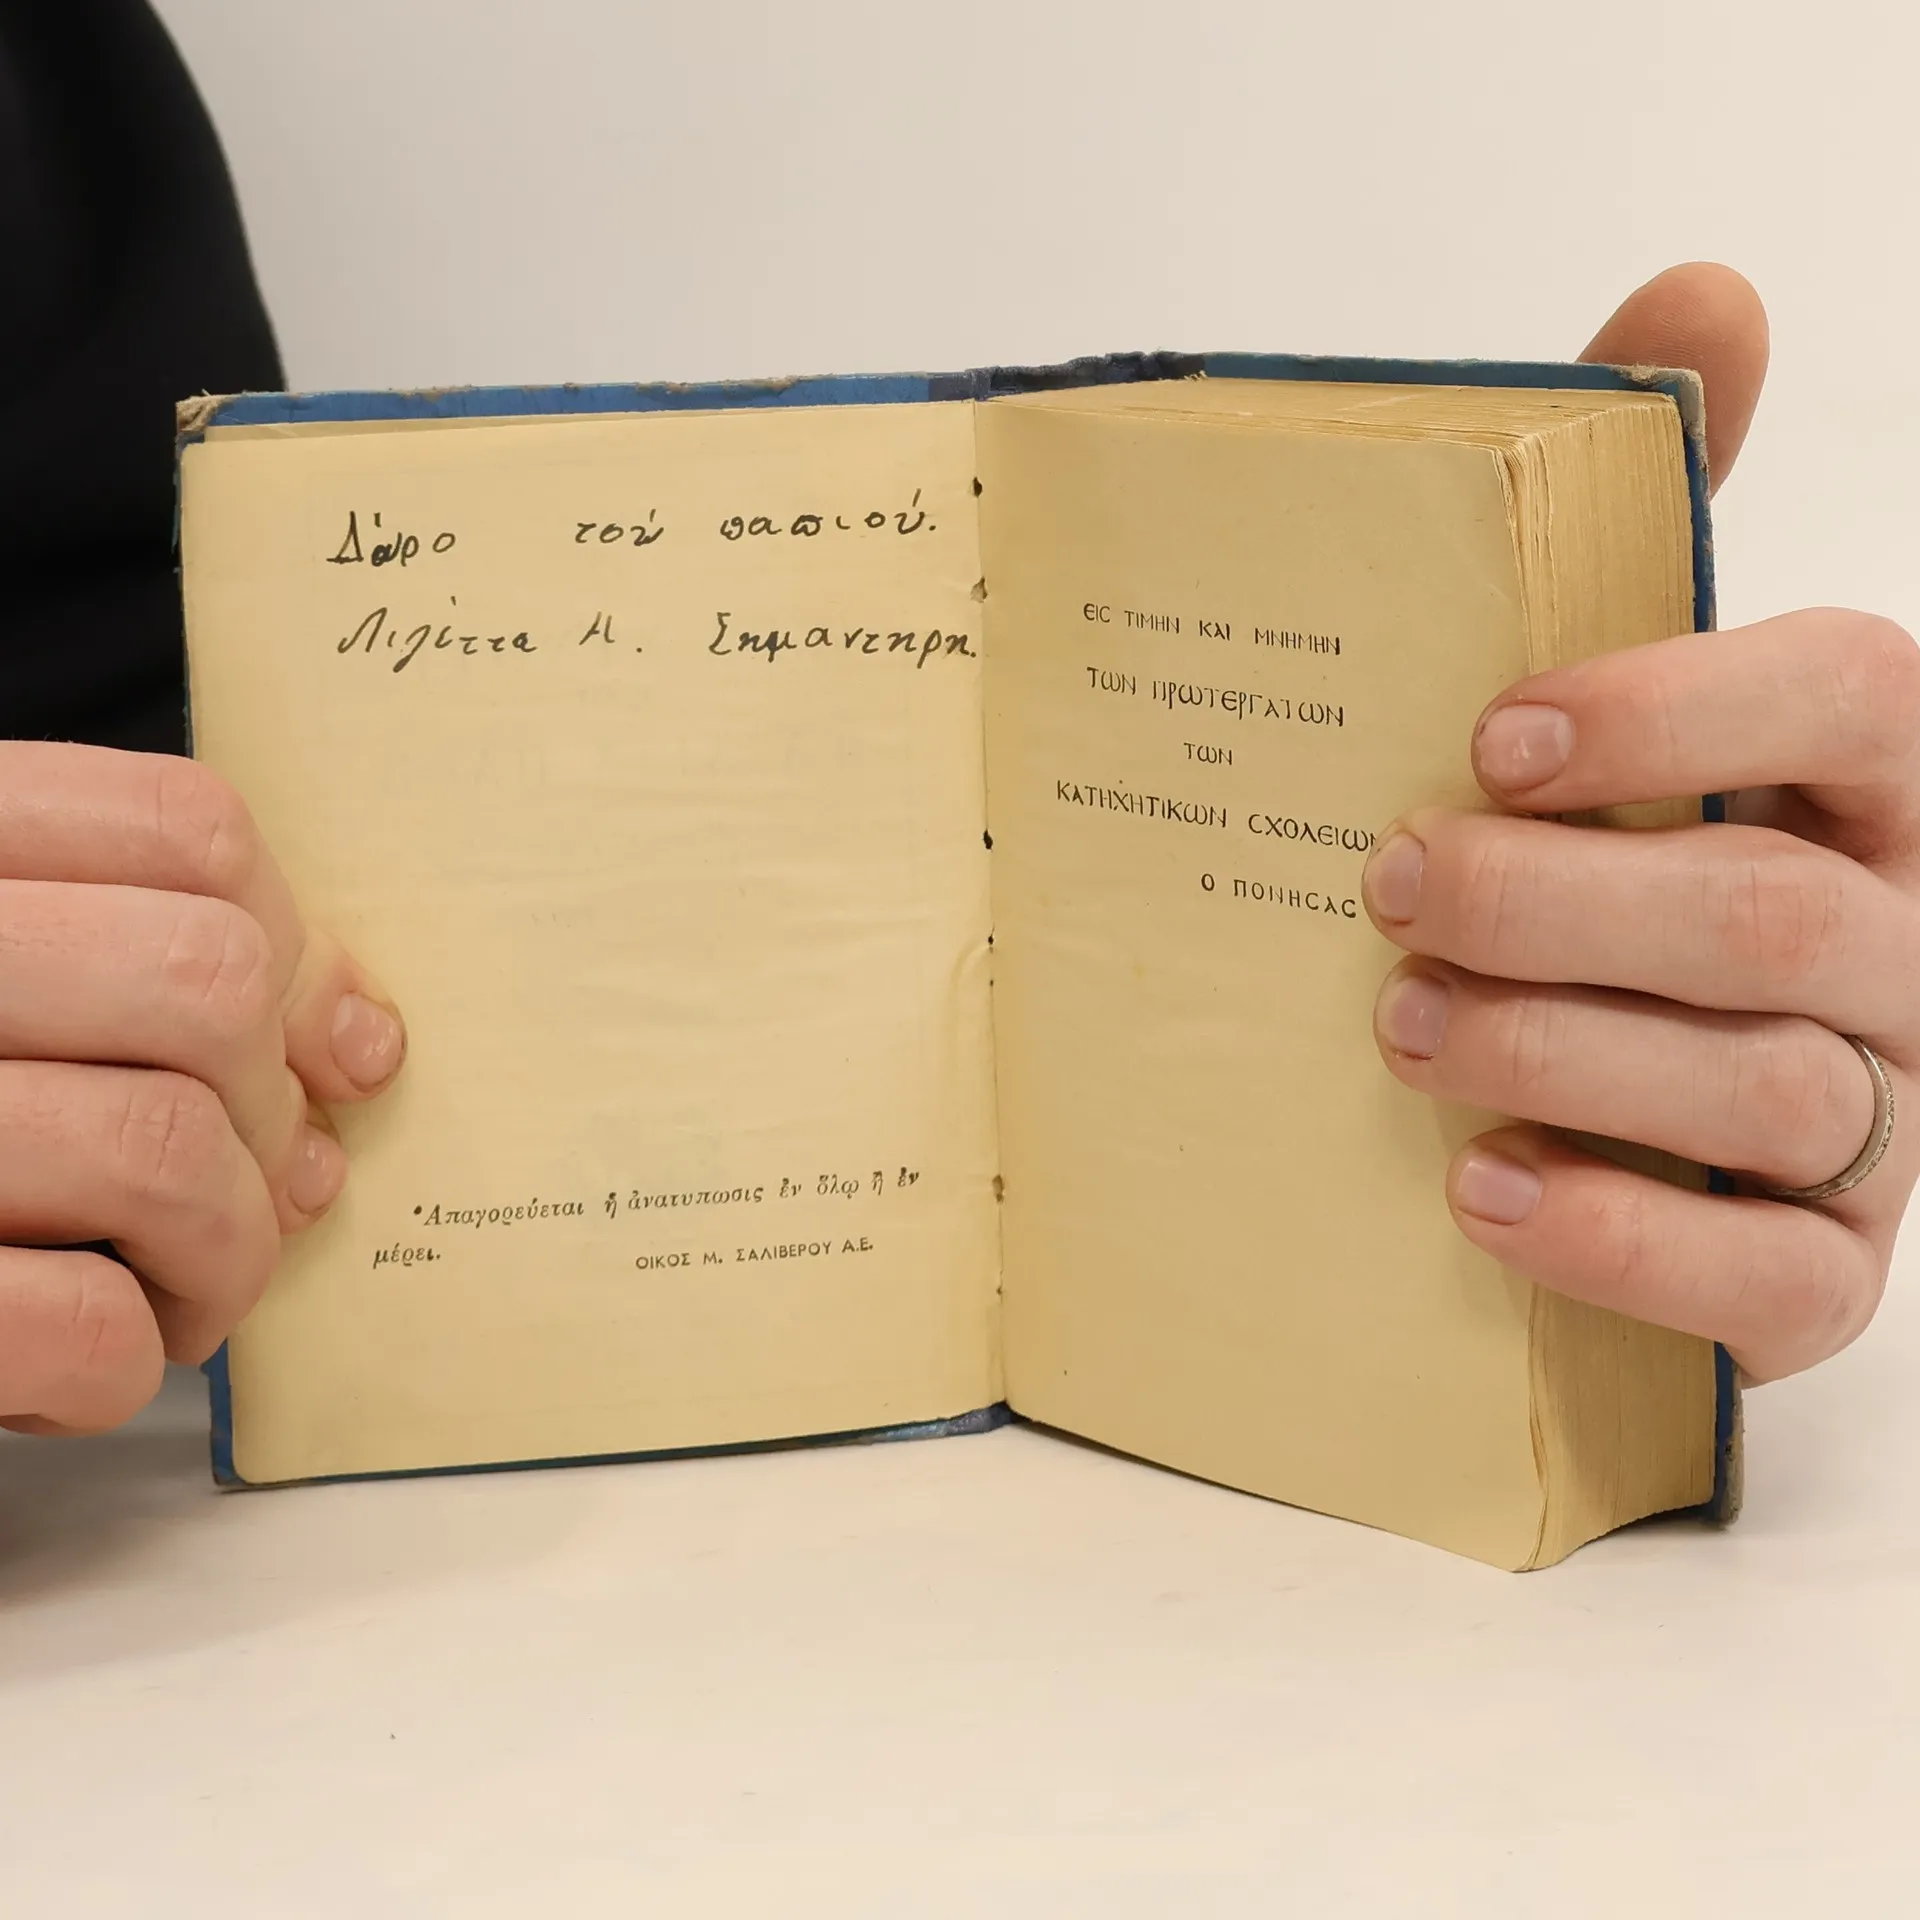 Δώρο τού παπιού.
Λιλίττα Μ. Σημαντηρη.
Ἀπαγορεύεται ἡ ἀνατύπωσις ἐν ὅλῳ ἢ ἐν
μέρει.
ΟΙΚΟΣ Μ. ΣΑΛΙΒΕΡΟΥ Α.Ε.
ΕΙϹ ΤΙΜΗΝ ΚΑΙ ΜΝΗΜΗΝ
ΤΩΝ ΠΡΩΤΕΡΓΑΤΩΝ
ΤΩΝ
ΚΑΤΗΧΗΤΙΚΩΝ ϹΧΟΛΕΙΩΝ
Ο ΠΟΝΗϹΑϹ